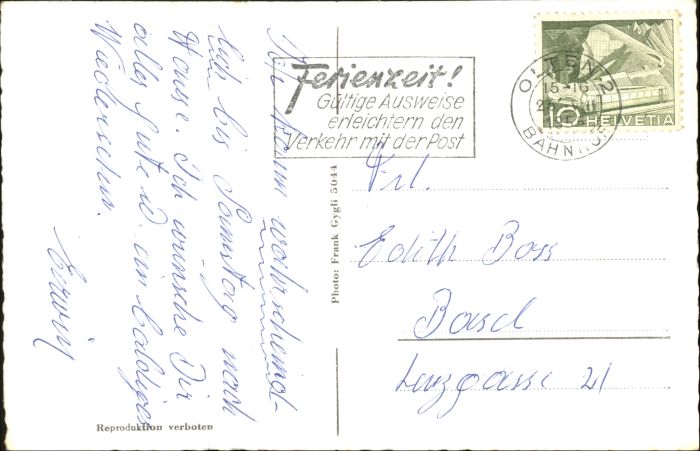 Ich kann wahrschein-
lich bis Samstag nach
Hause. Ich wünsche Dir
alles Gute u. ein baldiges
Wiedersehn.
Erwin
Ferienzeit!
Gültige Ausweise
erleichtern den
Verkehr mit der Post
OLTEN 2
15-16
BAHNHOF
10 HELVETIA
Photo: Frank Gygli 5044
Frl.
Edith Boss
Basel
Lenzgasse 21
Reproduktion verboten